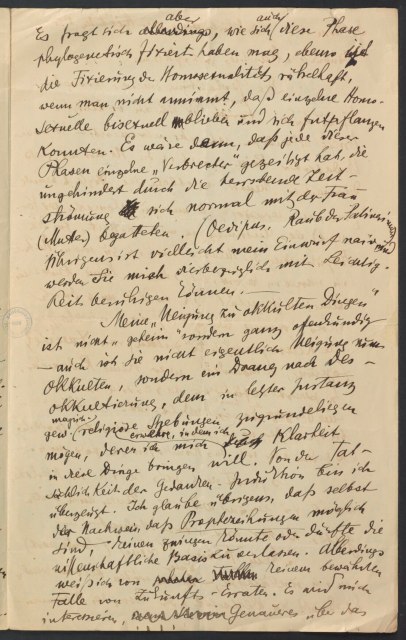 aber auch
Es fragt sich allerdings, wie sich diese Phase
phylogenetisch fixiert haben mag, ebenso ist
die Fixierung der Homosexualität rätselhaft,
wenn man nicht annimmt, daß einzelne Homo-
sexuelle bisexuell blieben und sich fortpflanzen
konnten. Es wäre denn, daß jede dieser
Phasen einzelne „Verbrecher" gezeitigt hat, die
ungehindert durch die herrschende Zeit-
strömung sich normal mit der Frau
(Mutter) begatteten. (Oedipus, Raub der Sabinerinnen)
Übrigens ist vielleicht mein Einwurf naiv und
werden Sie mich diesbezüglich mit Leichtig-
keit beruhigen können. —
Meine „Neigung zu okkulten Dingen"
ist nicht „geheim" sondern ganz offenkundig
— auch ist sie nicht eigentlich Neigung zum
Okkulten, sondern ein Drang nach Des-
okkultierung, dem in letzter Instanz
magisch-
religiöse Strebungen zugrundeliegen
mögen, derer ich mich erwehre, indem ich Klarheit
in diese Dinge bringen will. Von der Tat-
sächlichkeit der Gedanken-Induktion bin ich
überzeugt. Ich glaube übrigens, daß selbst
der Nachweis, daß Prophezeihungen möglich
sind, keinen zwingen könnte oder dürfte die
wissenschaftliche Basis zu verlassen. Allerdings
weiß ich von keinem bewährten
Falle von Zukunfts-Erraten. Es wird mich
interessieren, Genaueres über das